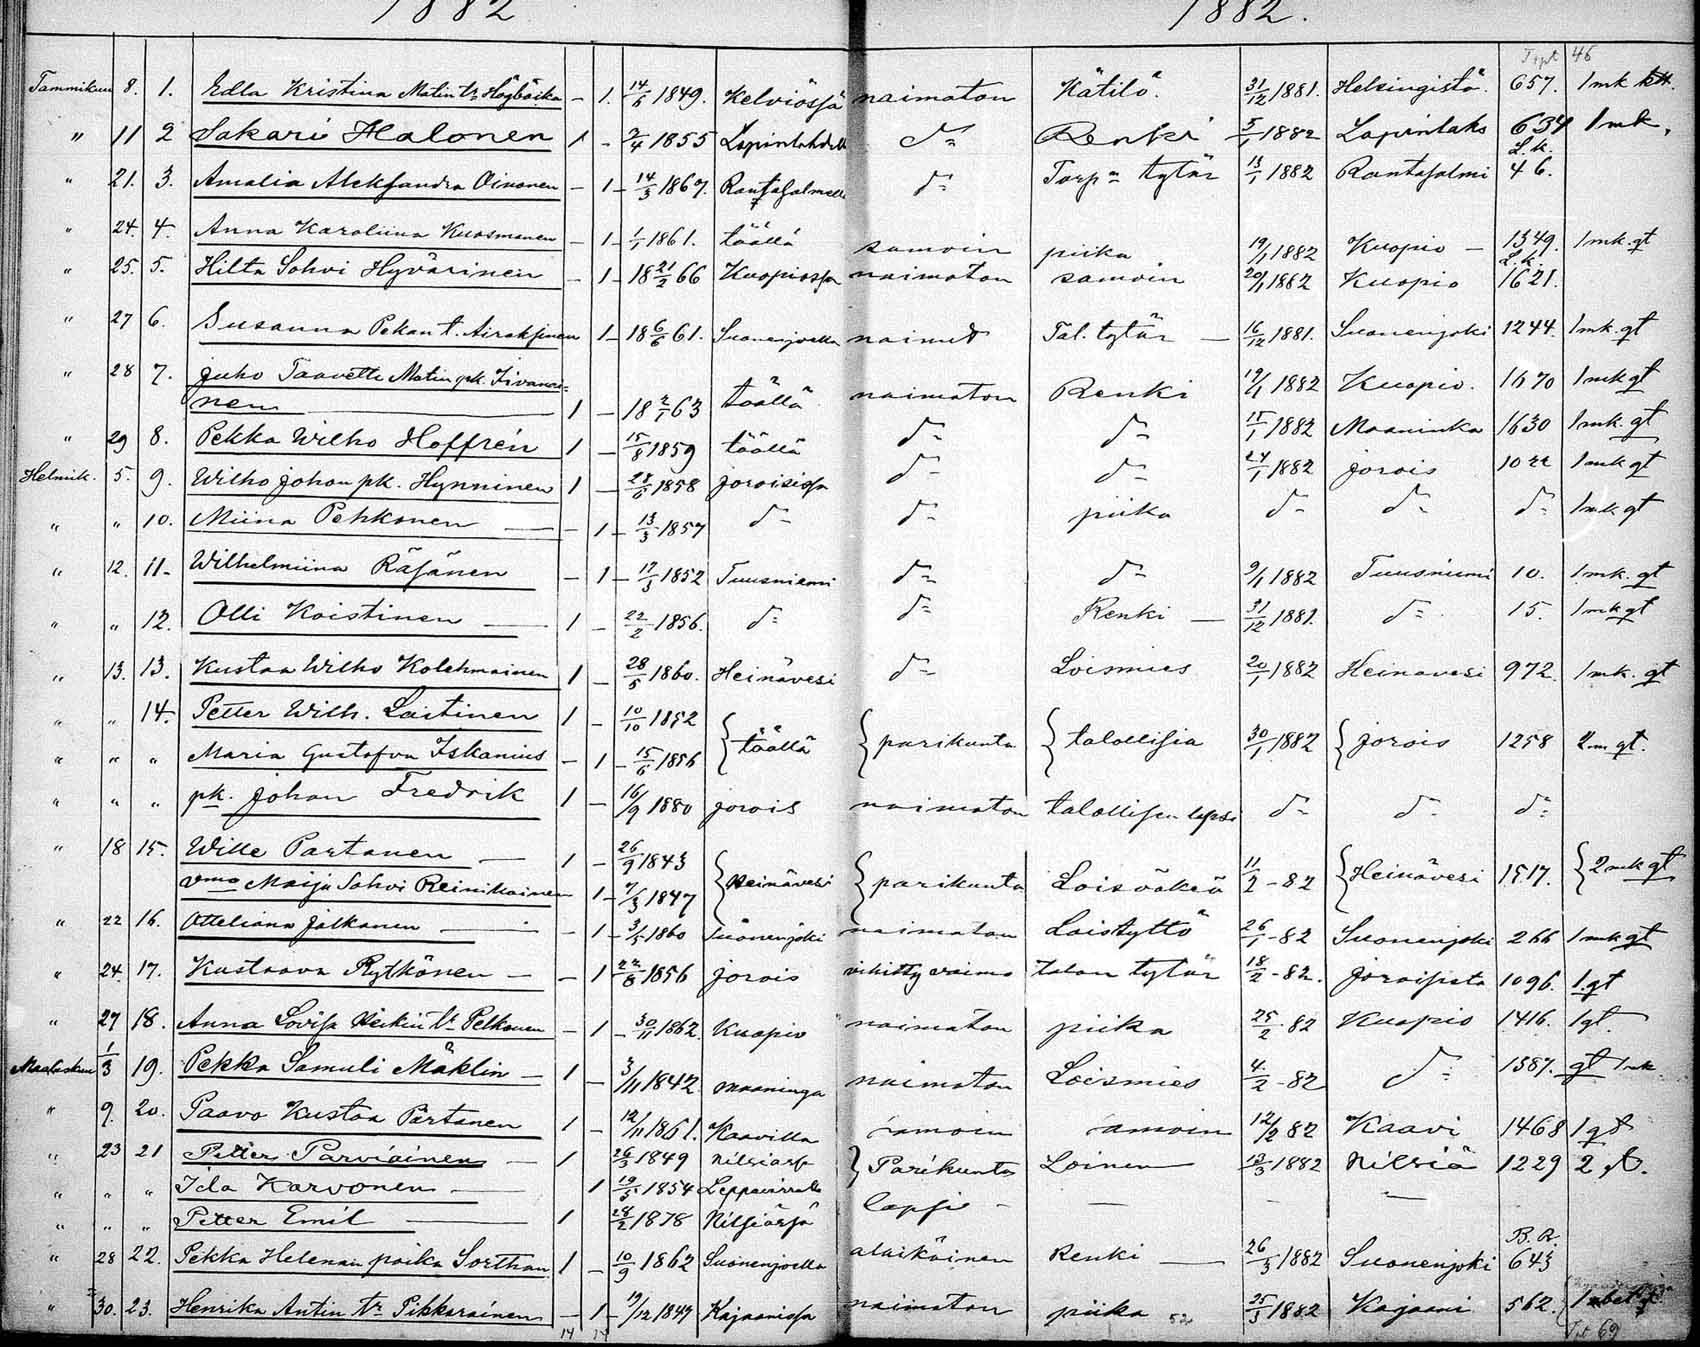 1882 1882.
46
Tammikuu 8. 1. Edla Kristina Matin tr Högbäcka – 1. 14/6 1849. Kelviössä naimaton Kätilö 31/12 1881. Helsingistä 657. 1 mk
" 11 2 Sakari Halonen 1 - 2/4 1855 Lapinlahdella d:o Renki 5/1 1882 Lapinlaks 634 1 mk.
L.k.
" 21. 3. Amalia Aleksandra Oinonen – 1 – 14/3 1867. Rantasalmella d:o Torp:n tytär 13/1 1882 Rantasalmi 46.
" 24. 4. Anna Karoliina Kuosmanen – 1 – 1/1 1861. täällä samoin piika 19/1 1882 Kuopio – 1349. 1 mk. gt
L.k.
" 25. 5. Hilta Sohvi Hyvärinen – 1 – 18 21/2 66 Kuopiossa naimaton samoin 20/1 1882 Kuopio 1621.
" 27 6. Susanna Pekan t. Airaksinen 1 – 18 6/6 61. Suonenjoella naimat Tal. tytär – 16/12 1881. Suonenjoki 1244. 1 mk. gt
" 28 7. Juho Taavetti Matin pk. Iivanai=
nen 1 – 18 2/1 63 täällä naimaton Renki 19/1 1882 Kuopio. 1670 1 mk gt
" 29 8. Pekka Wilho Hoffrén 1 – 15/8 1859 täällä d:o d:o 15/1 1882 Maaninka 1630 1 mk. gt
Helmik. 5. 9. Wilho Johan pk. Hynninen 1 – 28/6 1858 Joroisissa d:o d:o 24/1 1882 Jorois 1022 1 mk gt
" " 10. Miina Pehkonen – – 1 – 13/3 1857 d:o d:o piika d:o d:o d:o 1 mk gt
" 12. 11 – Wilhelmiina Räsänen – 1 – 17/3 1852 Tuusniemi d:o d:o 9/1 1882 Tuusniemi 10. 1 mk. gt
" " 12. Olli Koistinen – 1 – 22/2 1856. d:o d:o Renki – 31/12 1881. d:o 15. 1 mk gt
" 13. 13. Kustaa Wilho Kolehmainen 1 – 28/5 1860. Heinävesi d:o Loismies 20/1 1882 Heinavesi 972. 1 mk. gt
" " 14. Petter Wilh. Laitinen 1 – 10/10 1852
" " " Maria Gustafva Iskanius – 1 – 15/6 1856 täällä parikunta talollisia 30/1 1882 Jorois 1258 2 m gt.
" " " pk. Johan Fredrik 1 – 16/9 1880 Jorois naimaton talollisen lapsi d:o d:o d:o
" 18 15. Wille Partanen – 1 – 26/9 1843
vmo Maija Sohvi Reinikainen 1 – 7/3 1847 Heinävesi parikunta Loisväkeä 11/2 – 82 Heinävesi 1517. 2 mk gt
" 22 16. Otteliana Jalkanen – – 1 – 3/5 1860 Suonenjoki naimaton Loistyttö 26/1 – 82 Suonenjoki 266 1 mk gt
" 24. 17. Kustaava Rytkönen – – 1 22/8 1856 Jorois vihitty vaimo talon tytär 18/2 – 82. Joroissta 1096. 1 gt
" 27 18. Anna Lovisa Heikin tr Pelkonen – 1 – 30/11 1862. Kuopio naimaton piika 25/2 – 82 Kuopio 1416. 1 gt.
Maaliskuu 1/3 19. Pekka Samuli Mäklin – 1 – 3/11 1842. Maaninga naimaton Loismies 4./2 – 82 d:o 1587. gt 1 mk
" 9. 20. Paavo Kustaa Partanen 1 – 12/11 1861. Kaavilla samoin samoin 12/2 82 Kaavi 1468 1 gt
" 23 21 Petter Parviainen – 1 26/3 1849 Nilsiäss Parikunta Loinen 13/3 1882 Nilsiä 1229 2 gt.
" " " Ida Karvonen – 1 19/5 1854 Leppävirralla lapsi – – – –
" " " Petter Emil – 1 28/2 1878 Nilsiässä
B.R.
" 28 22. Pekka Helenan poika Sorthan 1 – 10/9 1862 Suonenjoella alaikäinen Renki – 26/3 1882 Suonenjoki 643
" 30. 23. Henrika Antin tr Pikkarainen – 1 – 19/12 1847 Kajaanissa naimaton piika 25/3 1882 Kajaani 562.
14 52 69